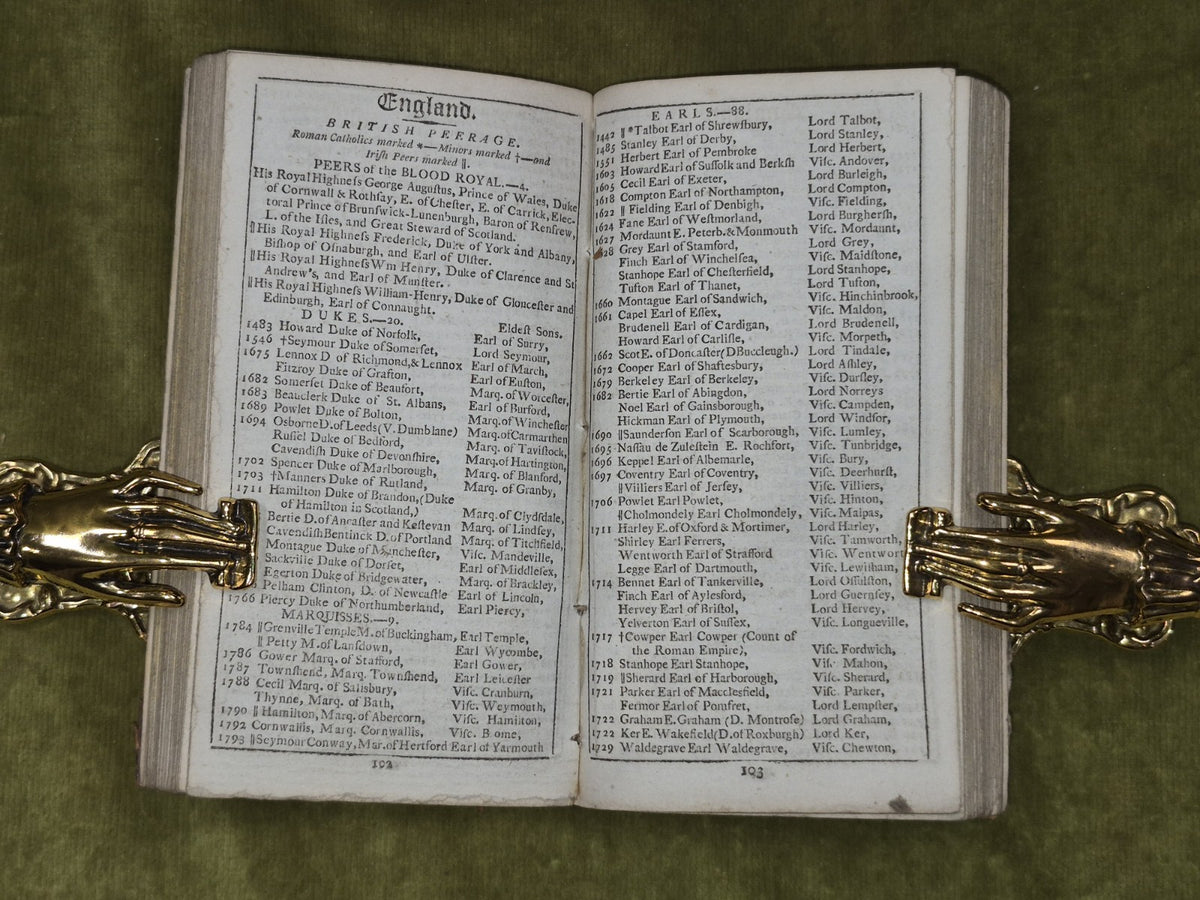 England.
BRITISH PEERAGE.
Roman Catholics marked *—Minors marked †—and
Iriſh Peers marked ‖.
PEERS of the BLOOD ROYAL.—4.
His Royal Highneſs George Auguſtus, Prince of Wales, Duke
of Cornwall & Rothſay, E. of Cheſter, E. of Carrick, Elec-
toral Prince of Brunſwick-Lunenburgh, Baron of Renfrew,
L. of the Iſles, and Great Steward of Scotland.
‖His Royal Highneſs Frederick, Duke of York and Albany,
Biſhop of Oſnaburgh, and Earl of Ulſter.
‖His Royal Highneſs Wm Henry, Duke of Clarence and St
Andrew's, and Earl of Munſter.
‖His Royal Highneſs William-Henry, Duke of Gloceſter and
Edinburgh, Earl of Connaught.
DUKES.—20. Eldeſt Sons.
1483 Howard Duke of Norfolk, Earl of Surry,
1546 †Seymour Duke of Somerſet, Lord Seymour,
1675 Lennox D of Richmond,& Lennox Earl of March,
Fitzroy Duke of Grafton, Earl of Euſton,
1682 Somerſet Duke of Beaufort, Marq. of Worceſter,
1683 Beauclerk Duke of St. Albans, Earl of Burford,
1689 Powlet Duke of Bolton, Marq. of Wincheſter
1694 Oſborne D. of Leeds (V. Dumblane) Marq. of Carmarthen
Ruſſel Duke of Bedford, Marq. of Taviſtock,
Cavendiſh Duke of Devonſhire, Marq. of Hartington,
1702 Spencer Duke of Marlborough, Marq. of Blanford,
1703 †Manners Duke of Rutland, Marq. of Granby,
1711 Hamilton Duke of Brandon, (Duke
of Hamilton in Scotland,) Marq. of Clydſdale,
Bertie D. of Ancaſter and Keſtevan Marq. of Lindſey,
Cavendiſh Bentinck D. of Portland Marq. of Titchfield,
Montague Duke of Mancheſter, Viſc. Mandeville,
Sackville Duke of Dorſet, Earl of Middleſex,
Egerton Duke of Bridgewater, Marq. of Brackley,
Pelham Clinton, D. of Newcaſtle Earl of Lincoln,
1766 Piercy Duke of Northumberland, Earl Piercy,
MARQUISSES.—9.
1784 ‖Grenville Temple M. of Buckingham, Earl Temple,
‖ Petty M. of Lanſdown, Earl Wycombe,
1786 Gower Marq. of Stafford, Earl Gower,
1787 Townſhend, Marq. Townſhend, Earl Leiceſter
1788 Cecil Marq. of Salisbury, Viſc. Cranburn,
Thynne, Marq. of Bath, Viſc. Weymouth,
1790 ‖ Hamilton, Marq. of Abercorn, Viſc. Hamilton,
1792 Cornwallis, Marq. Cornwallis, Viſc. B ome,
1793 ‖Seymour Conway, Mar. of Hertford Earl of Yarmouth
102
EARLS.—88.
1442 ‖ *Talbot Earl of Shrewſbury, Lord Talbot,
1485 Stanley Earl of Derby, Lord Stanley,
1551 Herbert Earl of Pembroke Lord Herbert,
1603 Howard Earl of Suffolk and Berkſh Viſc. Andover,
1605 Cecil Earl of Exeter, Lord Burleigh,
1618 Compton Earl of Northampton, Lord Compton,
1622 ‖ Fielding Earl of Denbigh, Viſc. Fielding,
1624 Fane Earl of Weſtmorland, Lord Burgherſh,
1627 Mordaunt E. Peterb. & Monmouth Viſc. Mordaunt,
1628 Grey Earl of Stamford, Lord Grey,
Finch Earl of Winchelſea, Viſc. Maidſtone,
Stanhope Earl of Cheſterfield, Lord Stanhope,
Tufton Earl of Thanet, Lord Tufton,
1660 Montague Earl of Sandwich, Viſc. Hinchinbrook,
1661 Capel Earl of Eſſex, Viſc. Maldon,
Brudenell Earl of Cardigan, Lord Brudenell,
Howard Earl of Carliſle, Viſc. Morpeth,
1662 Scot E. of Doncaſter (D Buccleugh.) Lord Tindale,
1672 Cooper Earl of Shafteſbury, Lord Aſhley,
1679 Berkeley Earl of Berkeley, Viſc. Durſley,
1682 Bertie Earl of Abingdon, Lord Norreys
Noel Earl of Gainsborough, Viſc. Campden,
Hickman Earl of Plymouth, Lord Windſor,
1690 ‖Saunderſon Earl of Scarborough, Viſc. Lumley,
1695 Naſſau de Zuleſtein E. Rochfort, Viſc. Tunbridge,
1696 Keppel Earl of Albemarle, Viſc. Bury,
1697 Coventry Earl of Coventry, Viſc. Deerhurſt,
‖Villiers Earl of Jerſey, Viſc. Villiers,
1706 Powlet Earl Powlet, Viſc. Hinton,
‖Cholmondely Earl Cholmondely, Viſc. Malpas,
1711 Harley E. of Oxford & Mortimer, Lord Harley,
Shirley Earl Ferrers, Viſc. Tamworth,
Wentworth Earl of Strafford Viſc. Wentwort
Legge Earl of Dartmouth, Viſc. Lewiſham,
1714 Bennet Earl of Tankerville, Lord Oſſulſton,
Finch Earl of Aylesford, Lord Guernſey,
Hervey Earl of Briſtol, Lord Hervey,
Yelverton Earl of Suſſex, Viſc. Longueville,
1717 †Cowper Earl Cowper (Count of
the Roman Empire), Viſc. Fordwich,
1718 Stanhope Earl Stanhope, Viſc. Mahon,
1719 ‖Sherard Earl of Harborough, Viſc. Sherard,
1721 Parker Earl of Maccleſfield, Viſc. Parker,
Fermor Earl of Pomfret, Lord Lempſter,
1722 Graham E. Graham (D. Montroſe) Lord Graham,
1722 Ker E. Wakefield (D. of Roxburgh) Lord Ker,
1729 Waldegrave Earl Waldegrave, Viſc. Chewton,
103